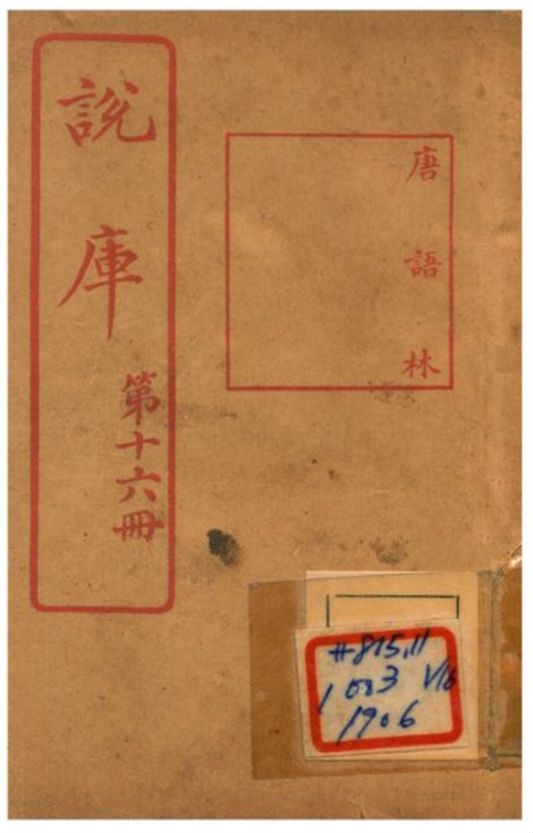 唐語林
說庫
第十六冊
#815.11
1083 V16
1906